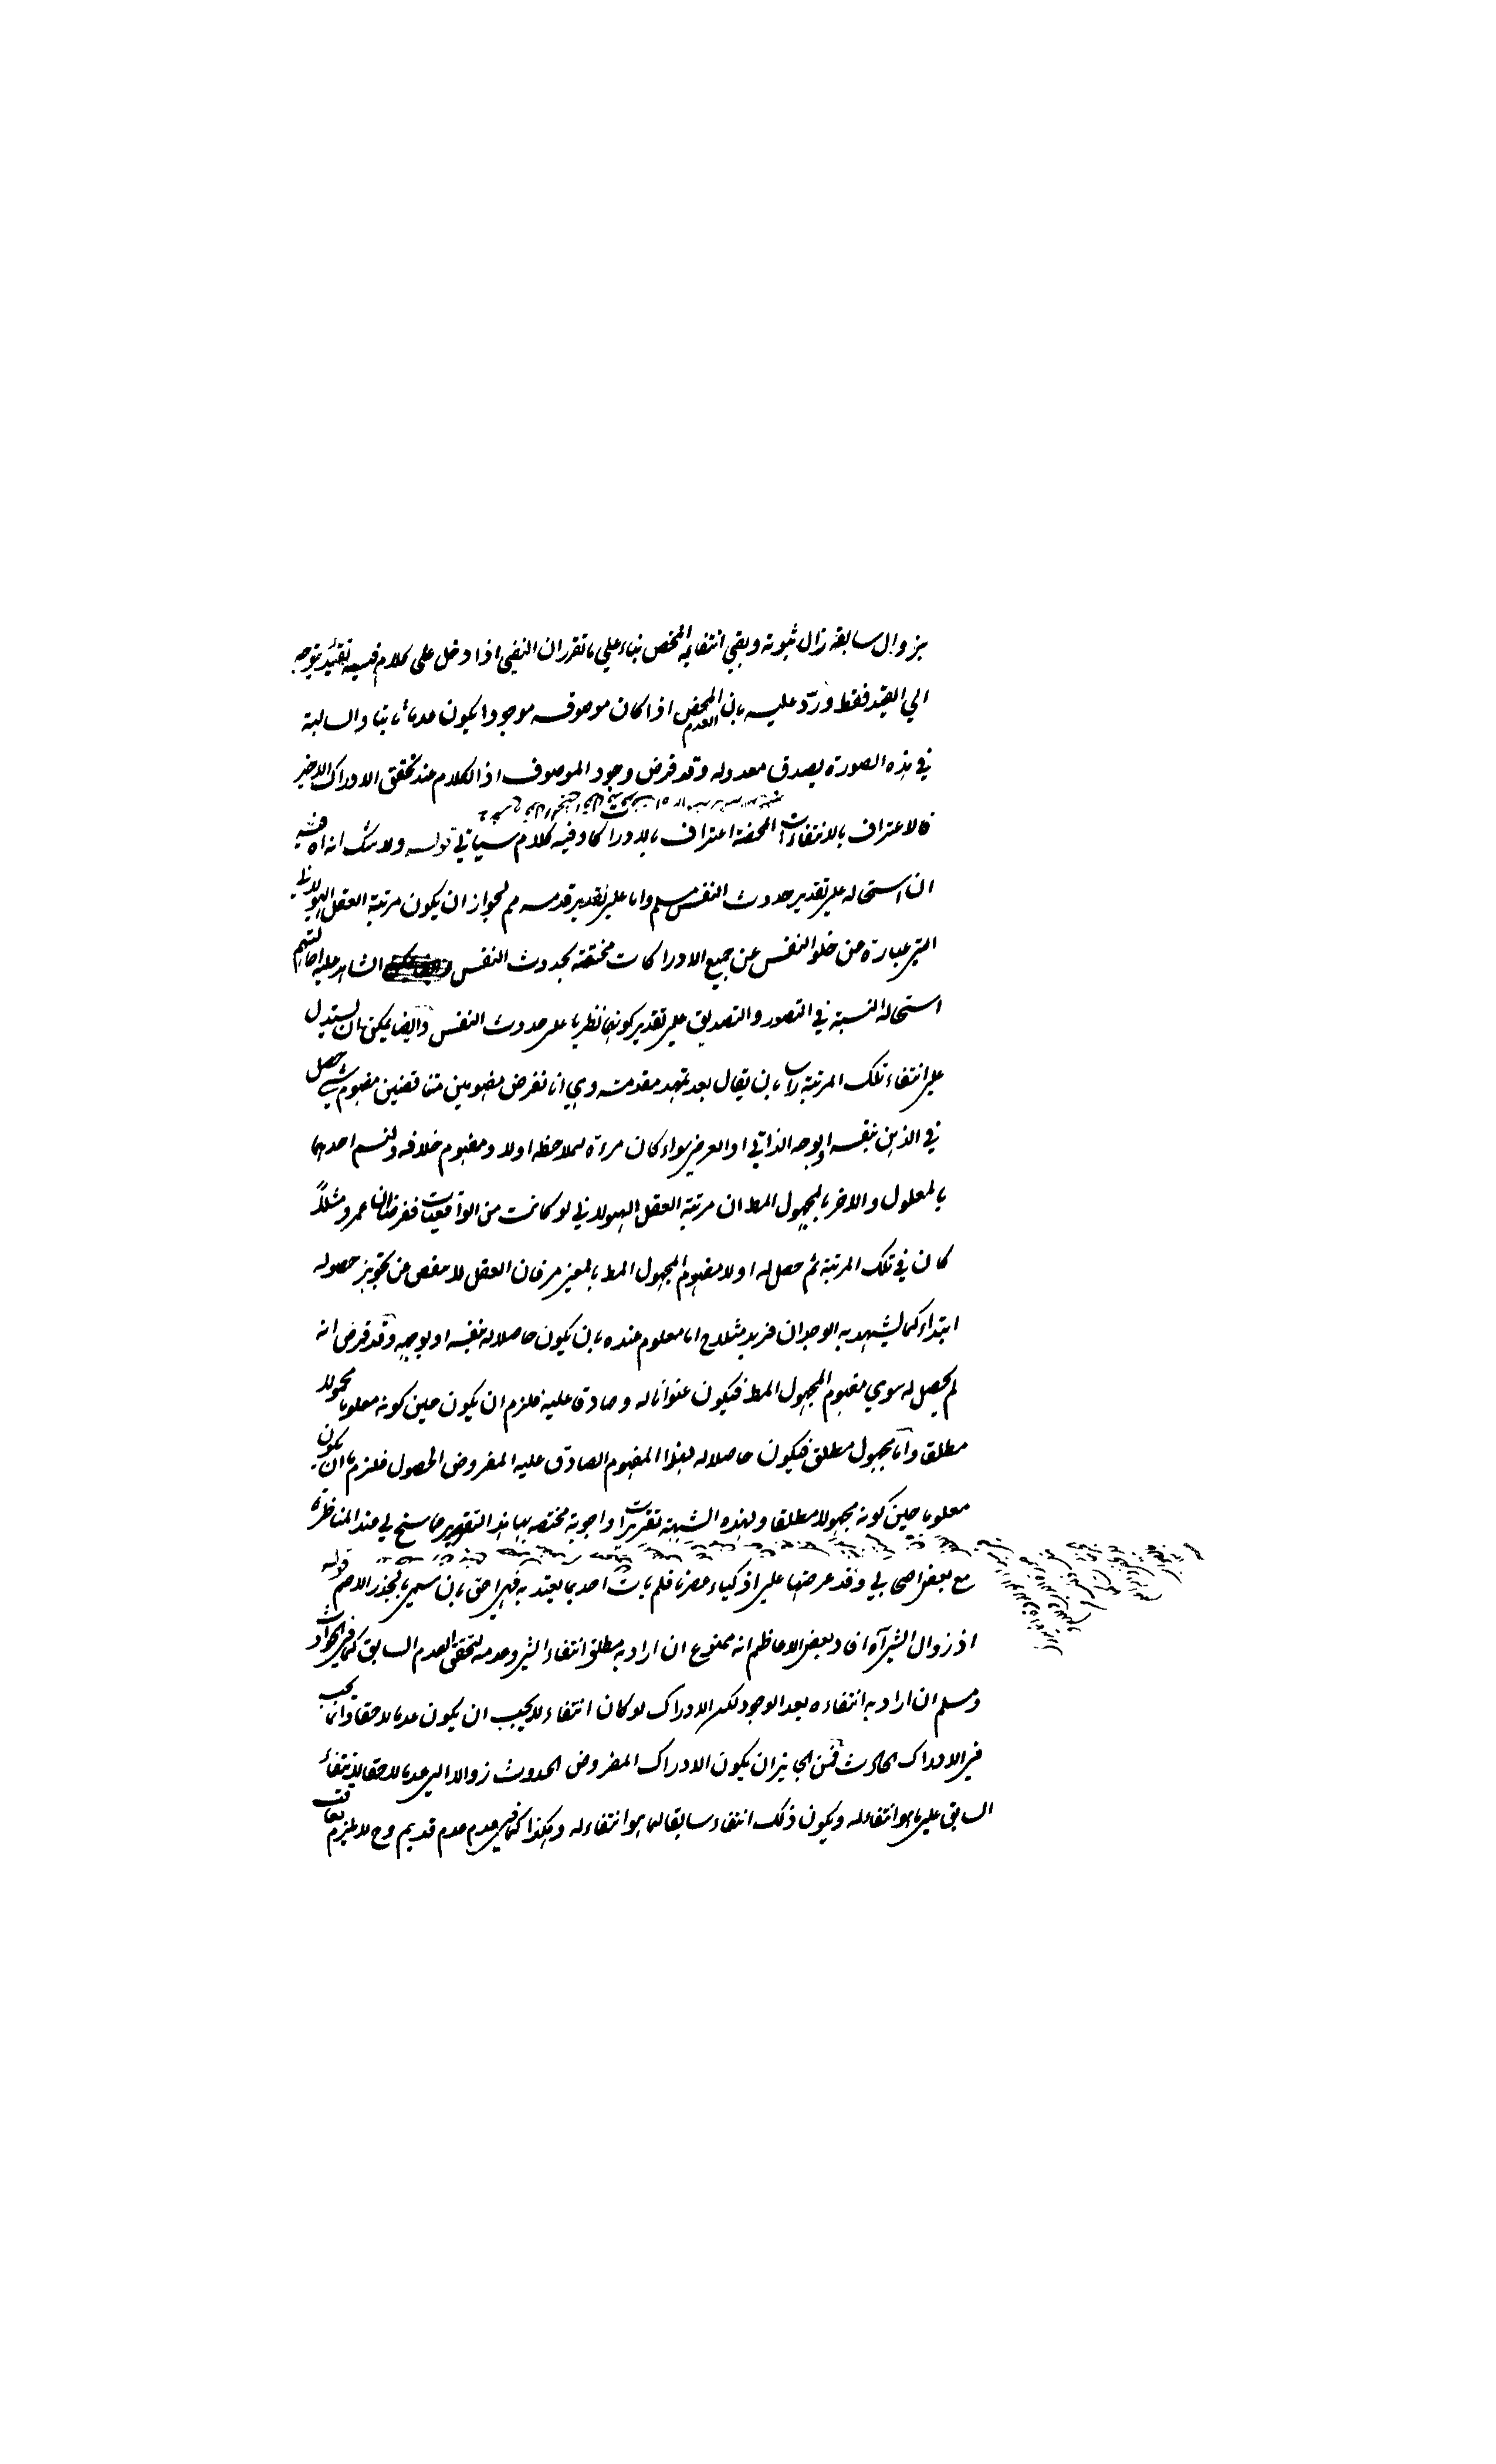 بزوال سابقه زال ثبوته وبقي انتفائه المحض بناء علي ما تقرر ان النفي اذا دخل علي كلام فيه تقييد يتوجه
الي القيد فقط وردّ عليه بان العدم المحض اذا كان موصوفه موجودا يكون عدما ثابتا والسالبة
في هذه الصورة يصدق معدوله وقد فرض وجود الموصوف اذ الكلام عند تحقق الادراك الاخير
فالاعتراف بالانتفاءات المحضة اعتراف بالادراكات وفيه كلام سياتي قوله ولا شك انه اه فيه
ان استحاله علي تقدير حدوث النفس مسلم واما علي تقدير قدمه مم لجواز ان يكون مرتبة العقل الهيولاني
التي عبارة عن خلو النفس عن جميع الادراكات مختصة بحدوث النفس الشاهد عليه احالتهم
استحالة النسبة في التصور والتصديق علي تقدير كونها نظريا علي حدوث النفس وايضا يمكن ان يستدل
علي انتفاء تلك المرتبة راسا بان يقال بعد تمهيد مقدمته وهي انا نفرض مفهومين متناقضين مفهوم شيء حصل
في الذهن بنفسه او بوجه الذاتي او العرضي سواء كان مرءة لملاحظه اولا ومفهوم خلافه ولنسم احدهما
بالمعلول والاخر بالمجهول المط ان مرتبة العقل الهيولاني لو كانت من الواقعيات ففرضنا ان عمرو مثلاً
كان في تلك المرتبة ثم حصل له اولا مفهوم المجهول المط بالمعني مر فان العقل لا مفص عن تجويز حصوله
ابتداء كما يشهد به الوجدان فزيد مثلا ح اما معلوم عنده بان يكون حاصلا له بنفسه او بوجهه وقد فرض انه
لم يحصل له سوي مفهوم المجهول المط فيكون عنوانا له وصادقا عليه فلزم ان يكون حين كونه معلوما مجهولا
مطلق واما مجهول مطلق فيكون حاصلا له لهذا المفهوم الصادق عليه المفروض الحصول فلزم ان يكون
معلوما حين كونه مجهولا مطلقا ولهذه الشبهة تقريرات واجوبة مختصه بها هذا التقرير مما سنح لي عند المناظرة
مع بعض اصحابي وقد عرضها علي اذكياء عصرنا فلم يات احد بما يعتد به فهي احق بان سمي بالجذر الاصم قوله
اذ زوال الشي آه افاد بعض الاعاظم انه ممنوع ان اراد به مطلق انتفاء الشي وعدمه لتحقق العدم السابق كما في الحوادث
ومسلم ان اراد به انتفاءه بعد الوجود لكن الادراك لو كان انتفاء لا يجب ان يكون عدما لاحقا وانما يجب
في الادراك الحادث فمن الجايز ان يكون الادراك المفروض الحدوث زوالا الي عدما لاحقا لانتفاء
السابق علي ما هو انتفاء له ويكون ذلك انتفاء سابقا لما هو انتفاء له وهكذا كما في عدم عدم قديم وح لا يلزم تعاقب